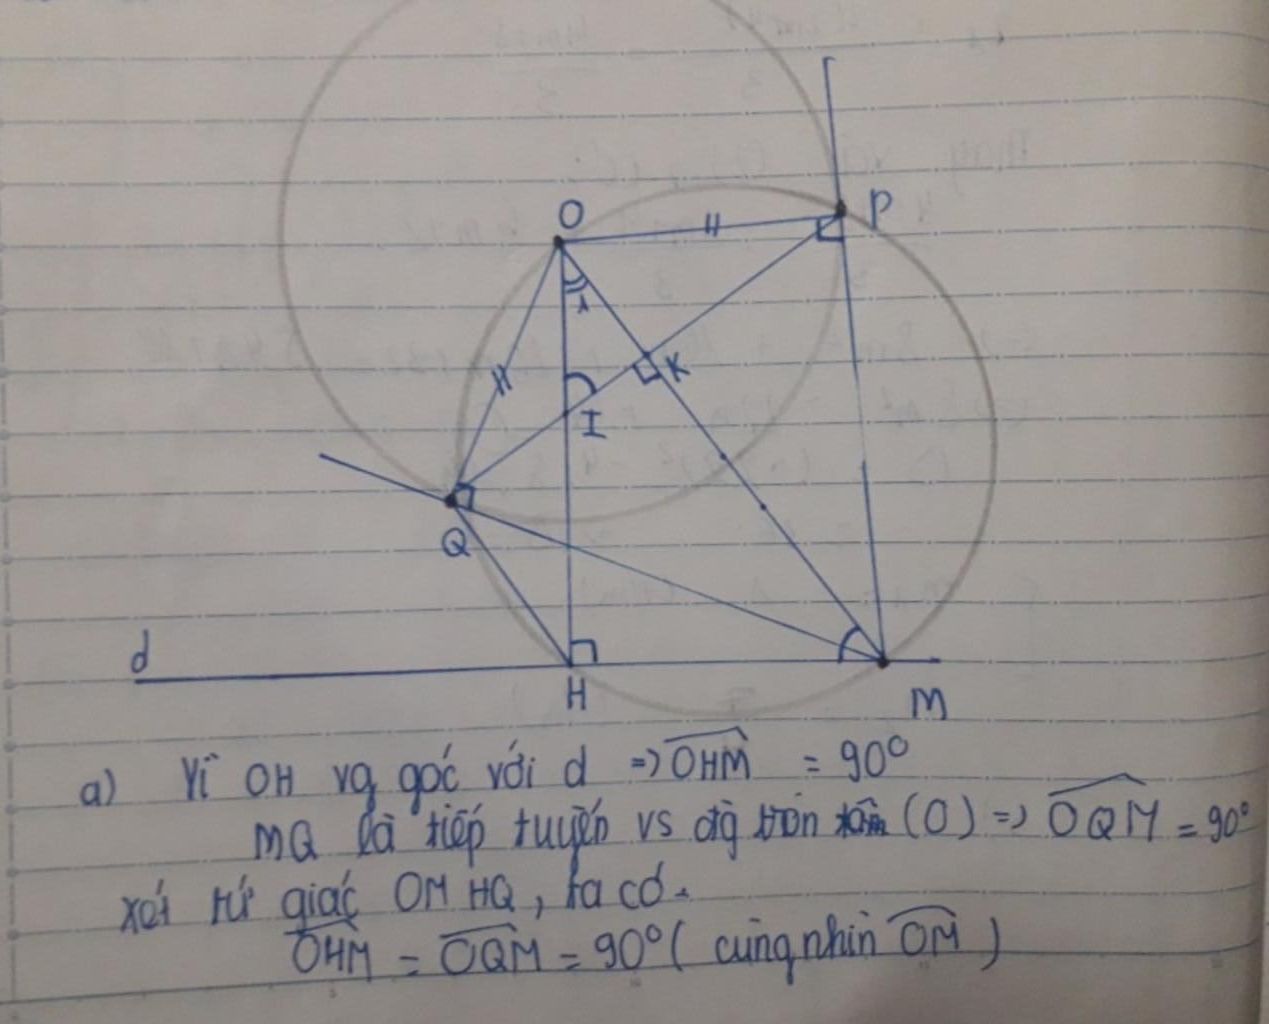 O
P
K
I
Q
d
H
M
a) Vì OH vg góc với d => OHM = 90°
MQ là tiếp tuyến vs đg tròn tâm (O) => OQM = 90°
xét tứ giác OMHQ, ta có.
OHM = OQM = 90° ( cùng nhìn OM )